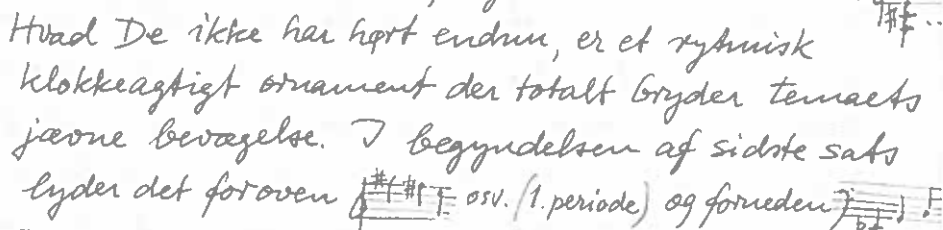 Hvad De ikke har hørt endnu, er et rytmisk
klokkeagtigt ornament der totalt bryder temaets
jævne bevægelse. I begyndelsen af sidste sats
lyder det foroven osv. (1. periode) og forneden